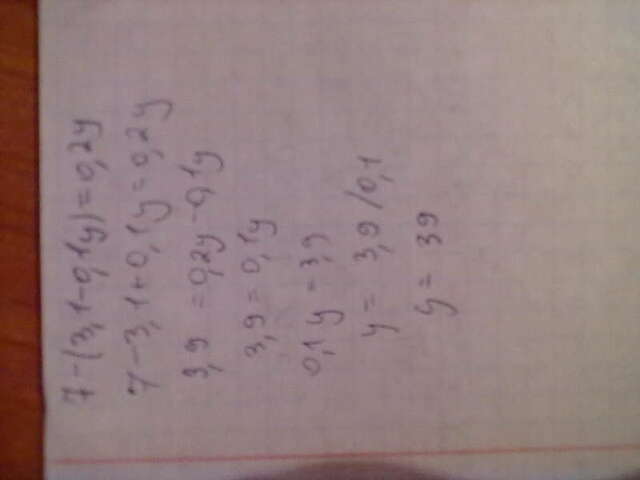 7-(3,1-0,1y)=0,2y
7-3,1+0,1y=0,2y
3,9 =0,2y-0,1y
3,9=0,1y
0,1y =3,9
y= 3,9/0,1
y= 39